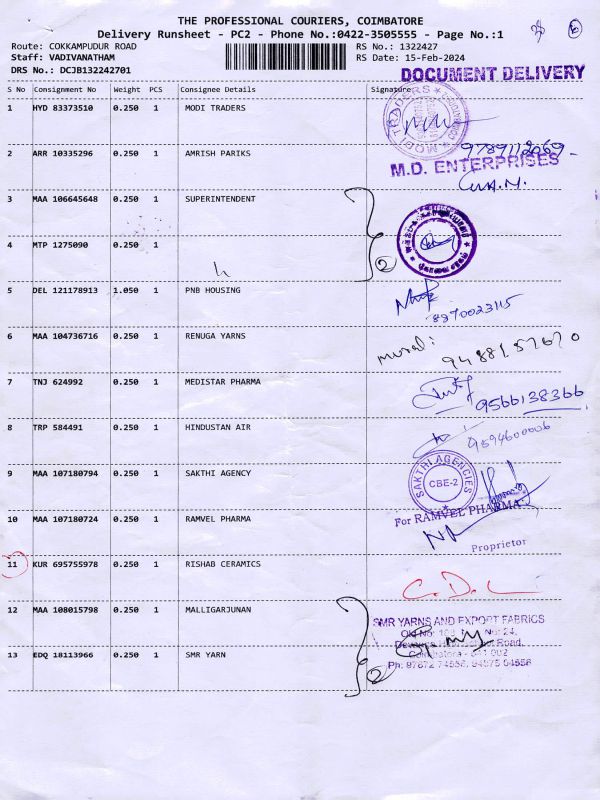 THE PROFESSIONAL COURIERS, COIMBATORE
Delivery Runsheet - PC2 - Phone No.:0422-3505555 - Page No.:1
Route: COKKAMPUDUR ROAD RS No.: 1322427
Staff: VADIVANATHAM RS Date: 15-Feb-2024
DRS No.: DCJB132242701
DOCUMENT DELIVERY
S No Consignment No Weight PCS Consignee Details Signature
1 HYD 83373510 0.250 1 MODI TRADERS
MODI TRADERS
2 ARR 10335296 0.250 1 AMRISH PARIKS
9789112069
M.D. ENTERPRISES
3 MAA 106645648 0.250 1 SUPERINTENDENT
4 MTP 1275090 0.250 1
2
5 DEL 121178913 1.050 1 PNB HOUSING
8870023115
6 MAA 104736716 0.250 1 RENUGA YARNS
murali
7 TNJ 624992 0.250 1 MEDISTAR PHARMA
9566138366
8 TRP 584491 0.250 1 HINDUSTAN AIR
9594600006
9 MAA 107180794 0.250 1 SAKTHI AGENCY
SAKTHI AGENCIES
CBE-2
10 MAA 107180724 0.250 1 RAMVEL PHARMA
For RAMVEL PHARMA
Proprietor
11 KUR 695755978 0.250 1 RISHAB CERAMICS
12 MAA 108015798 0.250 1 MALLIGARJUNAN
SMR YARNS AND EXPORT FABRICS
13 EDQ 18113966 0.250 1 SMR YARN
2